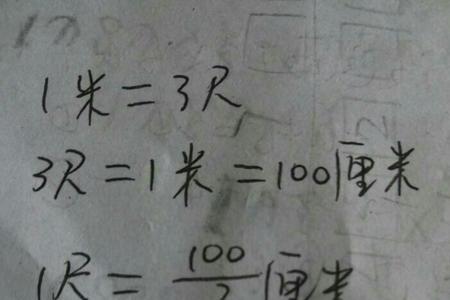 1米=3尺
3尺=1米=100厘米
1尺=100/3厘米